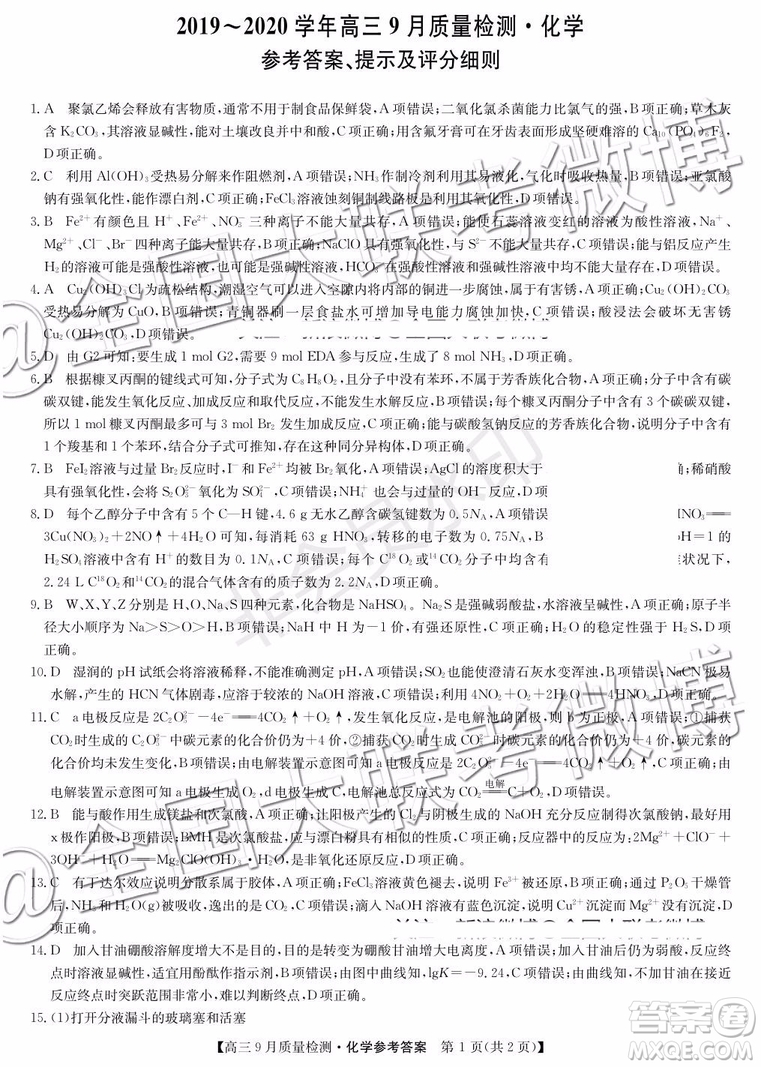 2019～2020 学年高三 9 月质量检测·化学
参考答案、提示及评分细则
1. A 聚氯乙烯会释放有害物质,通常不用于制食品保鲜袋,A 项错误;二氧化氯杀菌能力比氯气的强,B 项正确;草木灰
含 K2CO3,其溶液显碱性,能对土壤改良并作肥料,C 项正确;用含氟牙膏可在牙齿外形成更难溶解的 Ca10(PO4)6F2,
D 项正确。
2. C 利用 Al(OH)3 受热易分解来作阻燃剂,A 项错误;NH3 作制冷剂利用其易液化,气化时吸收热量,B 项错误;亚氯酸
钠有强氧化性,能作漂白剂,C 项正确;FeCl3 溶液蚀刻铜制线路板是利用了其氧化性,D 项错误。
3. B Fe2+ 有颜色且 H+、Fe2+、NO3- 三种离子不能大量共存,A 项错误;能使石蕊溶液变红的溶液为酸性溶液,Na+、
Mg2+、Cl-、Br- 四种离子能大量共存,B 项正确;NaClO 具有强氧化性,与 S2- 不能大量共存,C 项错误;能与铝反应产生
H2 的溶液可能是强酸性溶液,也可能是强碱性溶液,HCO3- 在强酸性和强碱性溶液中均不能大量存在,D 项错误。
4. A Cu2(OH)3Cl 为疏松结构,潮湿空气可以进入空隙内将内部的铜进一步腐蚀,属于有害锈,A 项正确;Cu2(OH)2CO3
受热易分解为 CuO,B 项错误;青铜器刷一层食盐水可增加导电能力使腐蚀加快,C 项错误;酸浸法会破坏无害锈
Cu2(OH)2CO3,D 项错误。
5. D 由 G2 可知:要生成 1 mol G2,需要 9 mol EDA 参与反应,生成了 8 mol NH3,D 项正确。
6. B 根据糠叉丙酮的键线式可知,分子式为 C8H8O2,且分子中没有苯环,不属于芳香族化合物,A 项错误;分子中含有碳
碳双键,能发生氧化反应、加成反应和取代反应,不能发生水解反应,B 项正确;每个糠叉丙酮分子中含有 3 个碳碳双键,
所以 1 mol 糠叉丙酮最多可与 3 mol Br2 发生加成反应,C 项错误;能与碳酸氢钠反应的芳香族化合物,说明分子中含有
1 个羧基和 1 个苯环,无法写出符合条件的结构式,故不存在这种同分异构体,D 项错误。
7. B FeI2 溶液与过量 Br2 反应时,I- 和 Fe2+ 均被 Br2 氧化,A 项错误;AgCl 的溶度积大于
;稀硝酸
具有强氧化性,会将 S2O3^2- 氧化为 SO4^2-,C 项错误;NH4+ 也会与过量的 NaOH 反应,D 项
8. D 每个乙醇分子中含有 5 个 C—H 键,4.6 g 无水乙醇含碳氢键数为 0.5NA,A 项错误
NO3══
3Cu(NO3)2+2NO↑+4H2O 可知,每消耗 63 g HNO3,转移的电子数为 0.75NA,B 项
H=1 的
H2SO4 溶液中含有 H+ 的数目为 0.1NA,C 项错误;每个 C18O2 或 14CO2 分子中均含有
状况下,
2.24 L C18O2 和 14CO2 的混合气体含有的质子数为 2.2NA,D 项正确。
9. B W、X、Y、Z 分别是 H、O、Na、S 四种元素,化合物是 NaHSO4。Na2S 是强碱弱酸盐,水溶液呈碱性,A 项正确;原子半
径大小顺序为 Na>S>O>H,B 项错误;NaH 中 H 为-1 价,有强还原性,C 项正确;H2O 的稳定性强于 H2S,D 项
正确。
10. D 湿润的 pH 试纸会将溶液稀释,不能准确测定 pH,A 项错误;SO2 也能使澄清石灰水变浑浊,B 项错误;NaCN 极易
水解,产生的 HCN 气体剧毒,应该溶于较浓的 NaOH 溶液,C 项错误;利用 4NO2+O2+2H2O══4HNO3,D 项正确。
11. C a 电极反应是 2C2O5^2-−4e-══4CO2↑+O2↑,发生氧化反应,是电解池的阳极,则 b 为正极,A 项错误;①捕获
CO2 时生成的 C2O5^2- 中碳元素的化合价仍为+4 价,②捕获 CO2 时生成 CO3^2- 时碳元素的化合价仍为+4 价,碳元素的
化合价均未发生变化,B 项错误;由电解装置示意图可知 a 电极反应是 2C2O5^2-−4e-══4CO2↑+O2↑,C 项正确;由
电解装置示意图可知 a 电极生成 O2,d 电极生成 C,电解池总反应式为 CO2 ══(电解) C+O2,D 项错误。
12. B 能与酸作用生成镁盐和次氯酸,A 项正确;让阳极产生的 Cl2 与阴极生成的 NaOH 充分反应制得 NaClO,最好用
x 极作阳极,B 项错误;BMH 是次氯酸盐,应与漂白粉具有相似的性质,C 项正确;反应器中的反应为:2Mg2++ClO-+
3OH-+H2O══Mg2ClO(OH)3·H2O,是非氧化还原反应,D 项正确。
13. C 有丁达尔效应说明分散系属于胶体,A 项正确;FeCl3 溶液黄色褪去,说明 Fe3+ 被还原,B 项正确;通过 P2O5 干燥管
后,NH3 和 H2O(g) 均被吸收,C 项错误;滴入浓氨水有白色沉淀,滴入 NaOH 溶液有蓝色沉淀,说明 Cu2+ 沉淀而 Mg2+
没有沉淀,D 项正确。
14. D 加入甘油硼酸溶解度增大不是目的,目的是转变为硼酸甘油增大电离度,A 项错误;加入甘油后仍为弱酸,恰好达
终点时溶液显碱性,适宜用酚酞作指示剂,B 项错误;由图中曲线可知,lgK=-9.24,C 项错误;由曲线知,不加入甘
油滴定突变范围过小,难以判断终点,D 项正确。
15. (1)打开分液漏斗的玻璃塞和活塞
【高三 9 月质量检测·化学参考答案 第 1 页(共 2 页)】
@全国大联考微博
@全国大联考微博
非会员水印
答案圈
MXQE.COM